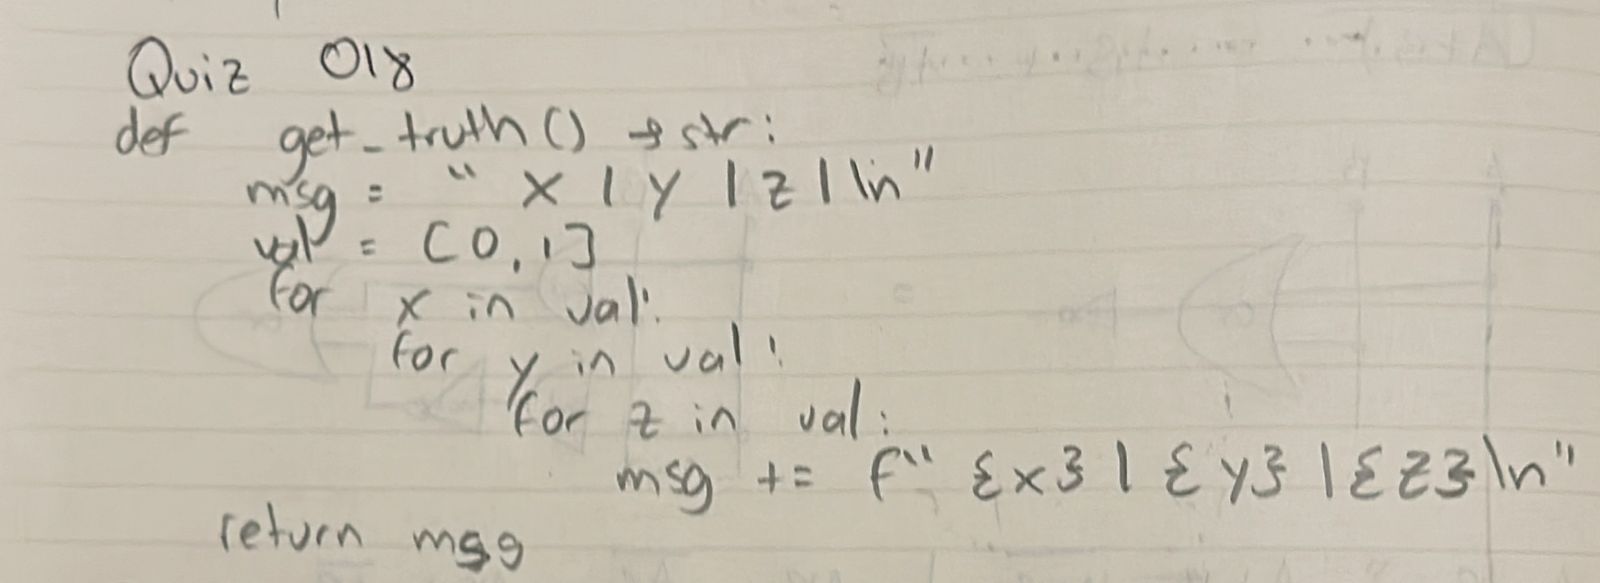 Quiz 018
def get_truth() → str:
msg = " x | y | z | \n"
val = [0, 1]
for x in val:
for y in val:
for z in val:
msg += f" {x} | {y} | {z} \n"
return msg